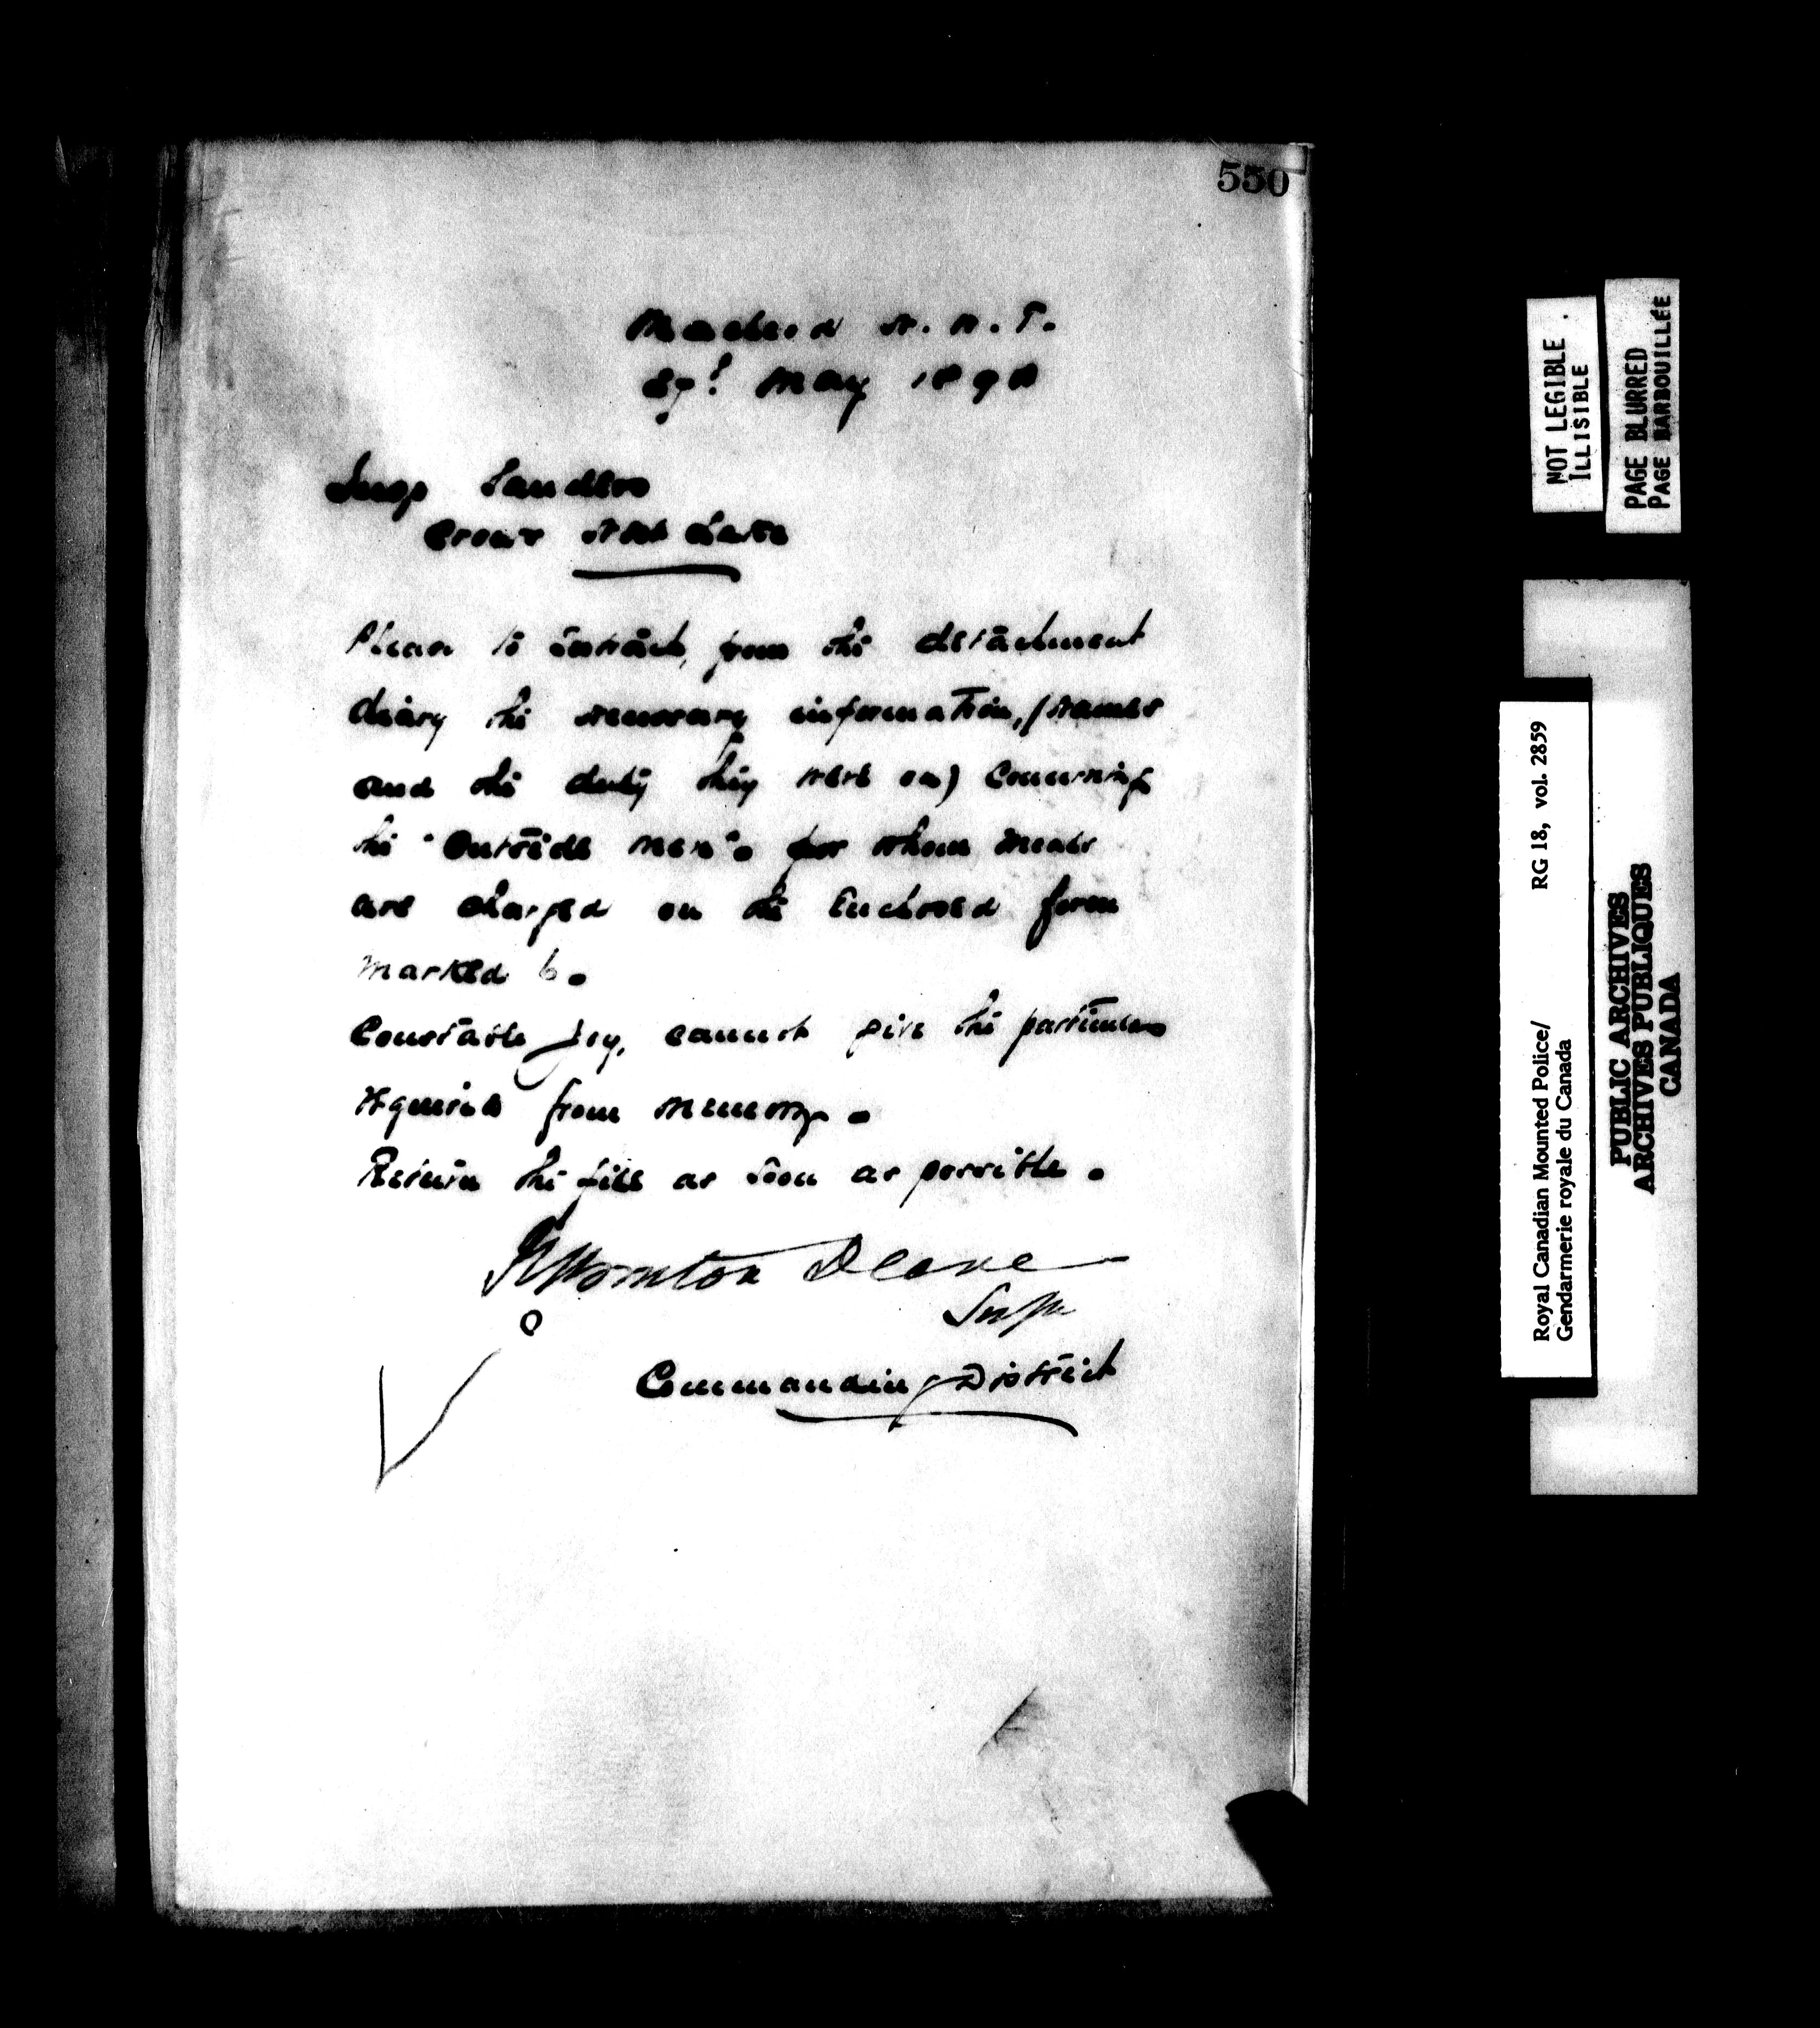 550
Macleod N. W. T.
May 1898
Insp Sanders
Crow's Nest Lake
Please to extract, from the detachment
diary the necessary information, (names
and the duty they were on) concerning
the "Outside men". for whom meals
are charged on the Enclosed form
marked b.
Constable Joy, cannot give the particulars
required from memory.
Return the file as soon as possible.
R Burton Deane
Supt
Commanding District
NOT LEGIBLE
ILLISIBLE
PAGE BLURRED
PAGE BARBOUILLÉE
Royal Canadian Mounted Police/ RG 18, vol. 2859
Gendarmerie royale du Canada
PUBLIC ARCHIVES
ARCHIVES PUBLIQUES
CANADA